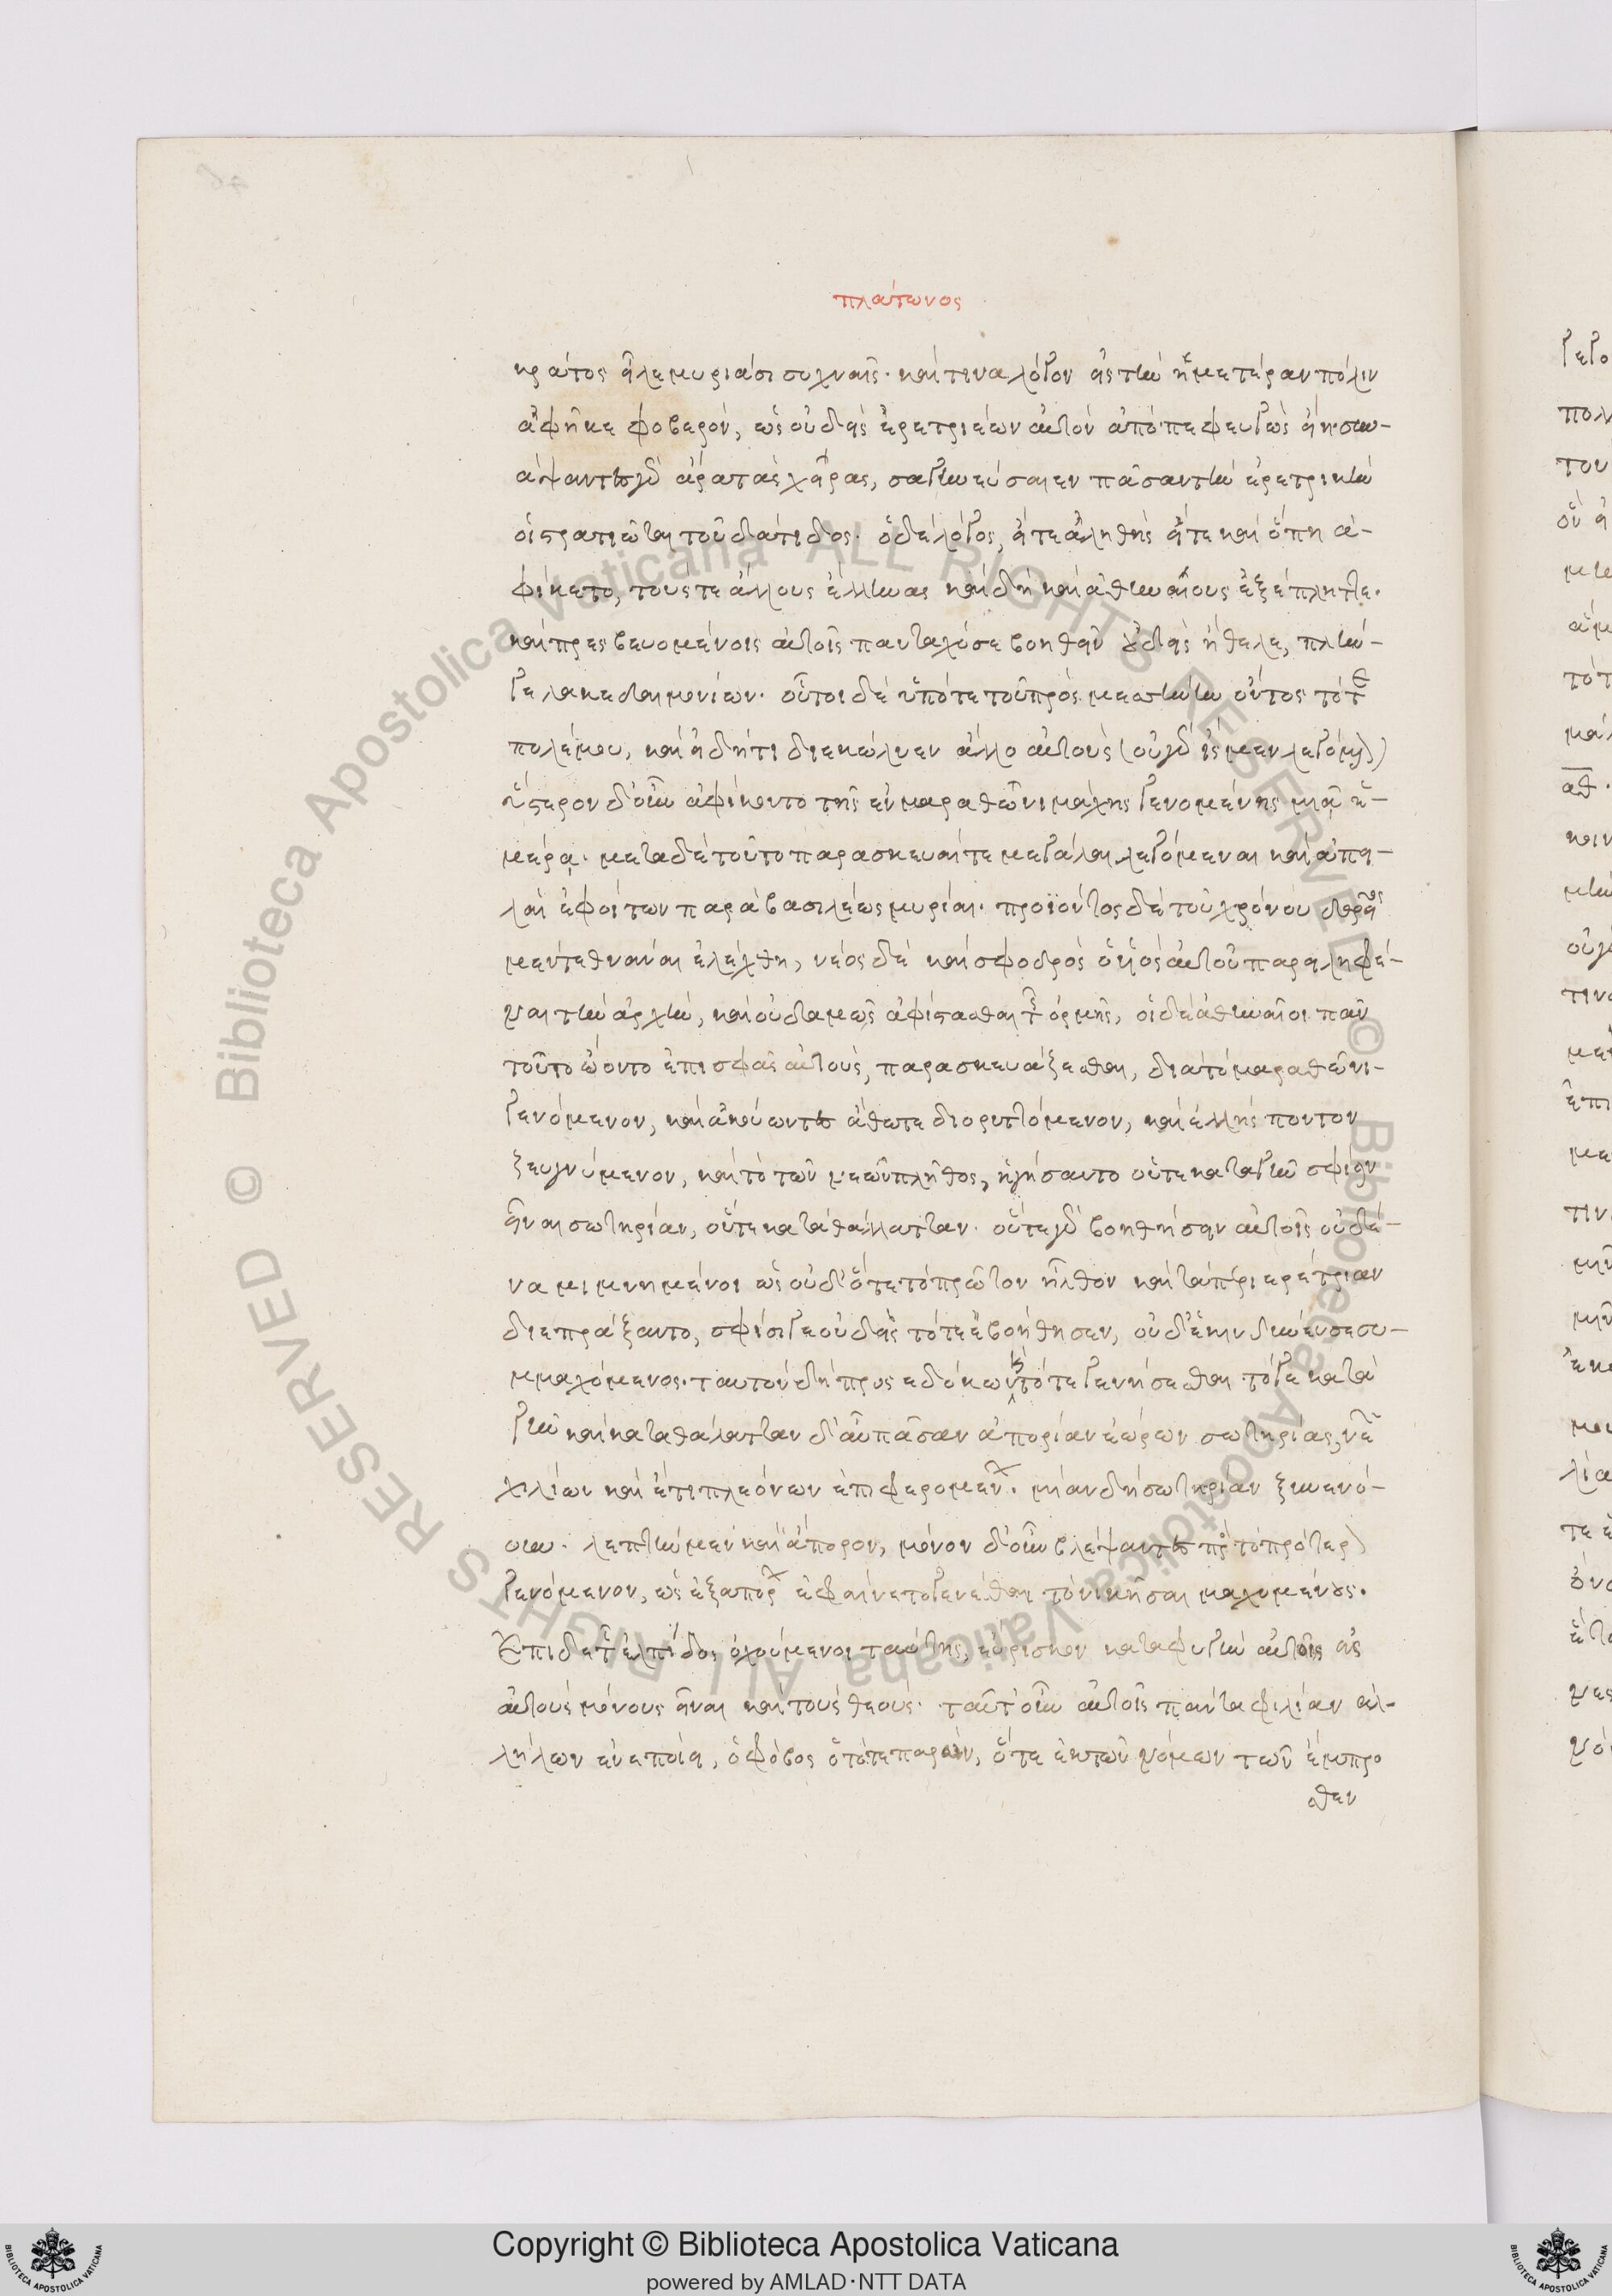 πλάτωνος
κράτος εἷλε μυριάσι συχναῖς· καί τινα λόγον εἰς τὴν ἡμετέραν πόλιν
ἀφῆκε φοβερόν, ὡς οὐδεὶς ἐρετριέων αὐτὸν ἀποπεφευγὼς εἴη· συν-
άψαντες γὰρ ἄρα τὰς χεῖρας, σαγηνεύσαιεν πᾶσαν τὴν ἐρετρικὴν
οἱ στρατιῶται τοῦ δάτιδος. ὁ δὲ λόγος, εἴτε ἀληθὴς εἴτε καὶ ὅπη ἀ-
φίκετο, τούς τε ἄλλους ἕλληνας καὶ δὴ καὶ ἀθηναίους ἐξέπληττε.
καὶ πρεσβευομένοις αὐτοῖς πανταχόσε βοηθεῖν οὐδεὶς ἤθελε, πλήν
γε λακεδαιμονίων. οὗτοι δὲ ὑπό τε τοῦ πρὸς μεσσήνην ὄντος τότε
πολέμου, καὶ εἰ δή τι διεκώλυεν ἄλλο αὐτοὺς (οὐ γὰρ ἴσμεν λεγόμενον)
ὕστερον δ' οὖν ἀφίκοντο τῆς ἐν μαραθῶνι μάχης γενομένης μιᾷ ἡ-
μέρᾳ. μετὰ δὲ τοῦτο παρασκευαί τε μεγάλαι λεγόμεναι καὶ ἀπει-
λαὶ ἐφοίτων παρὰ βασιλέως μυρίαι. προϊόντος δὲ τοῦ χρόνου δαρεῖος
μὲν τεθνάναι ἐλέχθη, νέος δὲ καὶ σφοδρὸς ὁ υἱὸς αὐτοῦ παρειληφέ-
ναι τὴν ἀρχήν, καὶ οὐδαμῶς ἀφίστασθαι τῆς ὁρμῆς, οἱ δὲ ἀθηναῖοι πᾶν
τοῦτο ᾤοντο ἐπὶ σφᾶς αὐτούς, παρασκευάζεσθαι, διὰ τὸ μαραθῶνι
γενόμενον, καὶ ἀκούοντες ἄθω τε διορυττόμενον, καὶ ἑλλήσποντον
ζευγνύμενον, καὶ τὸ τῶν νεῶν πλῆθος, ἡγήσαντο οὔτε κατὰ γῆν σφίσιν
εἶναι σωτηρίαν, οὔτε κατὰ θάλατταν. οὔτε γὰρ βοηθήσειν αὐτοῖς οὐδέ-
να μιμνημένοι ὡς οὐδ' ὅτε τὸ πρῶτον ἦλθον καὶ τὰ περὶ ἐρέτριαν
διεπράξαντο, σφίσι γε οὐδεὶς τότε ἐβοήθησεν, οὐδ' ἐκινδύνευσε συ-
μμαχόμενος. ταυτὸν δὴ προσεδόκων καὶ τότε γενήσεσθαι τό γε κατὰ
γῆν καὶ κατὰ θάλατταν δ' αὖ πᾶσαν ἀπορίαν ἑώρων σωτηρίας, νεῶν
χιλίων καὶ ἔτι πλεόνων ἐπιφερομένων. μίαν δὴ σωτηρίαν ξυνενό-
ουν. λεπτὴν μὲν καὶ ἄπορον, μόνην δ' οὖν βλέψαντες πρὸς τὸ πρότερον
γενόμενον, ὡς ἐξ ἀπόρων ἐφαίνετο γενέσθαι τὸ νικῆσαι μαχομένους.
Ἐπὶ δὲ τῆς ἐλπίδος ὀχούμενοι ταύτης, εὕρισκον καταφυγὴν αὐτοῖς εἰς
αὐτοὺς μόνους εἶναι καὶ τοὺς θεούς. ταῦτ' οὖν αὐτοῖς πάντα φιλίαν ἀλ-
λήλων ἐνεποίει, ὁ φόβος ὁ τότε παρών, ὅ τε ἐκ τῶν νόμων τῶν ἔμπρο
σθεν
Copyright © Biblioteca Apostolica Vaticana
powered by AMLAD·NTT DATA